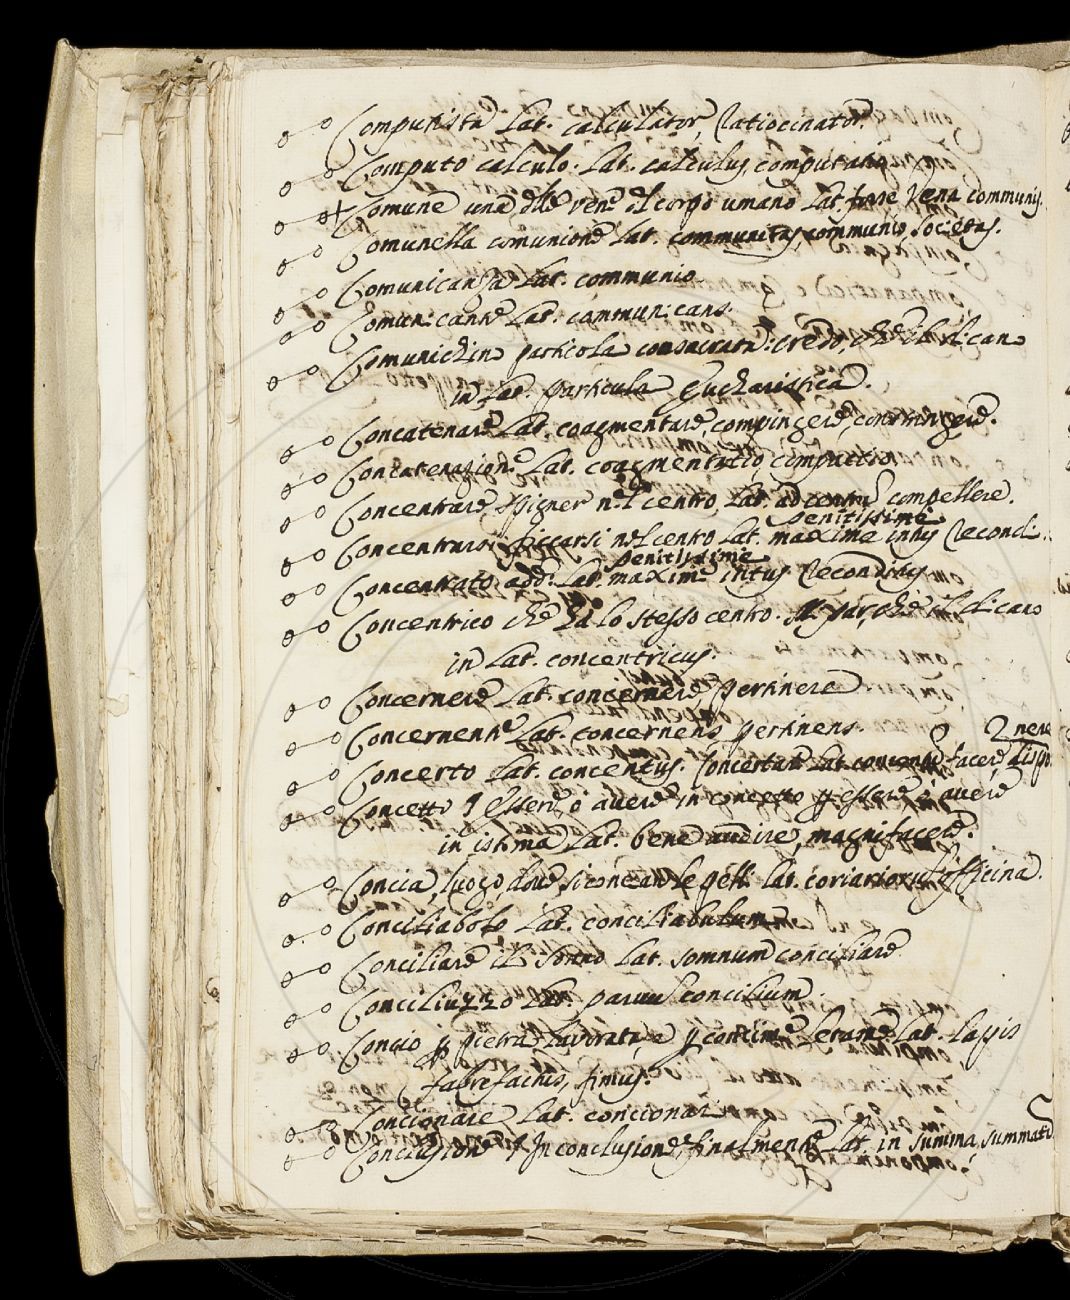 Computista Lat. calculator, Ratiocinator.
Computo calculo. Lat. calculus, computatio
Comune una del corpo umano Lat. forse Vena communis.
Comunella comunione Lat. communitas communio societas.
Comunicanza Lat. communio
Comunicante Lat. communicans.
Comunichino particola consacrata: credo, che dicano
in Lat. particula Eucharistica.
Concatenare Lat. coagmentare, compingere, constringere.
Concatenazione Lat. coagmentatio, compactio
Concentrare, spigner nel centro, Lat. ad centrum compellere.
penitissime
Concentrarsi ficcarsi nel centro Lat. maxime intus Recondi.
penitissime
Concentrato add. Lat. maxime intus Reconditus
Concentrico che ha lo stesso centro. che dicano
in Lat. concentricus.
Concernere Lat. concernere pertinere
Concernente Lat. concernens pertinens.
Concerto Lat. concentus. Concertare Lat. facere, dispo
nere
Concetto essere, o avere in concetto essere, o avere
in istima Lat. bene audire, magnifacere.
Concia, luogo, dove si conciano le pelli. Lat. coriariorum officina.
Conciliabolo Lat. conciliabulum
Conciliare il sonno Lat. somnum conciliare
Conciliuzzo Lat. parvum concilium
Concio pietra lavorata, e concime letame Lat. Lapis
fabrefactus, fimus.
Concionare Lat. concionari
Conclusione In conclusione, finalmente Lat. in summa, summatim